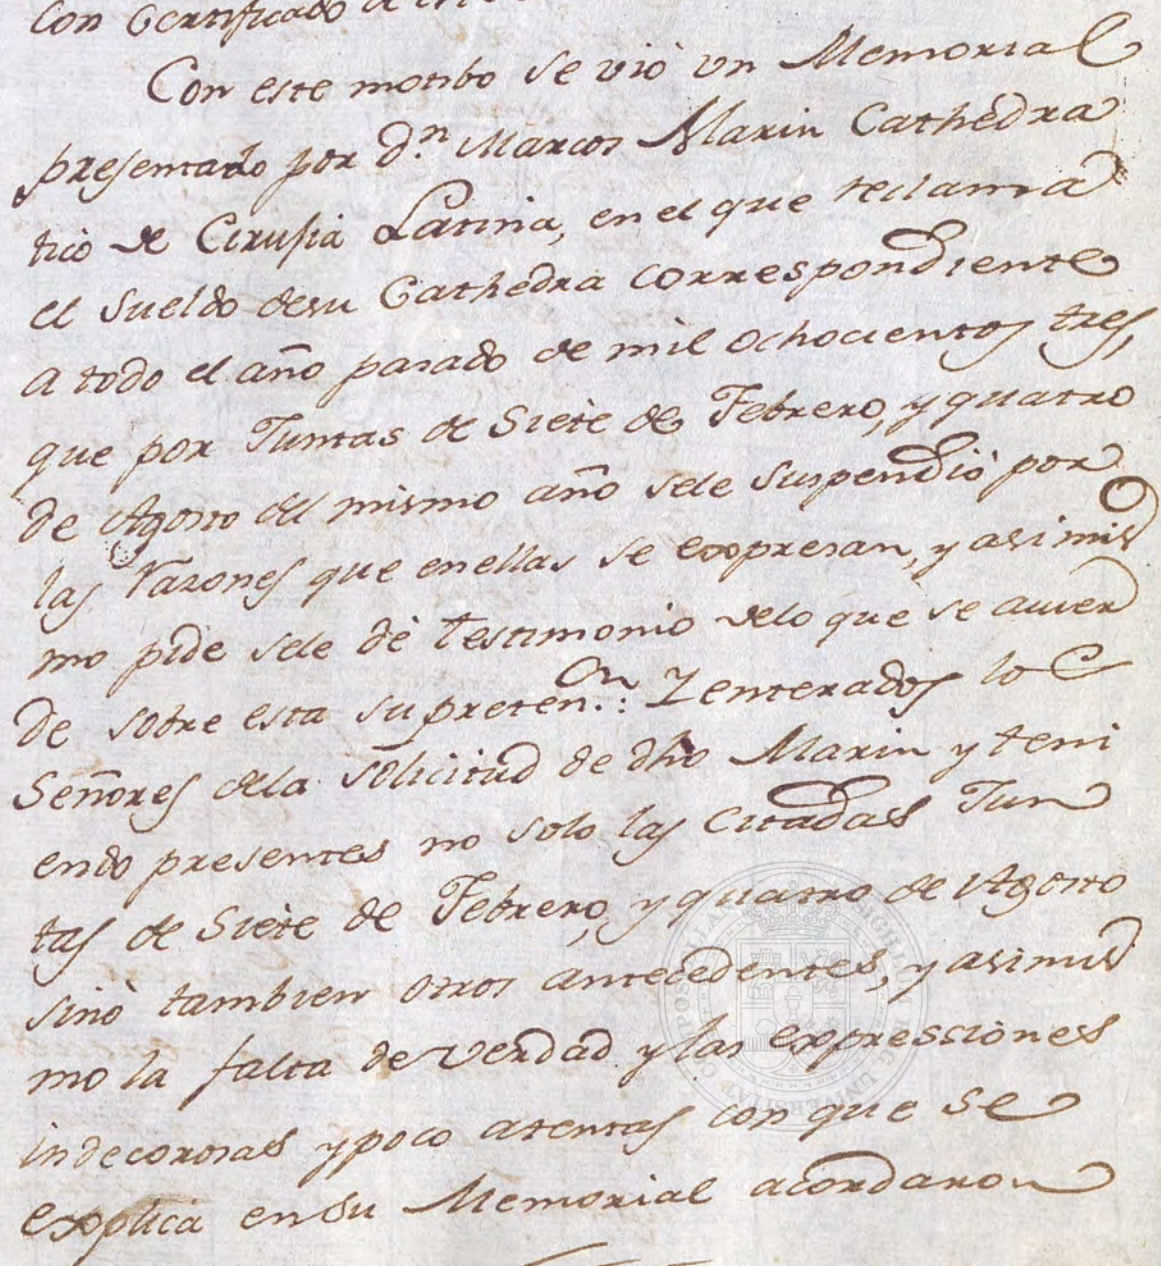 Con Certificado de
Con este motibo se vió vn Memorial
presentado por d.n Marcos Marin Cathedra
tico de Cirusia Latina, en el que reclama
el sueldo desu Cathedra correspondiente
a todo el año pasado de mil ochocientos tres,
que por Juntas de Siete de Febrero, y quatro
de Agosto del mismo año sele suspendió por
las razones que enellas se expresan, y asi mis
mo pide sele dé testimonio delo que se acuer
de sobre esta su preten.on: Y enterados los
Señores dela solicitud de dho Marin y teni
endo presentes no solo las citadas Jun
tas de Siete de Febrero, y quatro de Agosto
sinó tambien otros antecedentes, y asimis
mo la falta de verdad y las expressiones
indecorosas ypoco atentas con que se
explica ensu Memorial acordaron